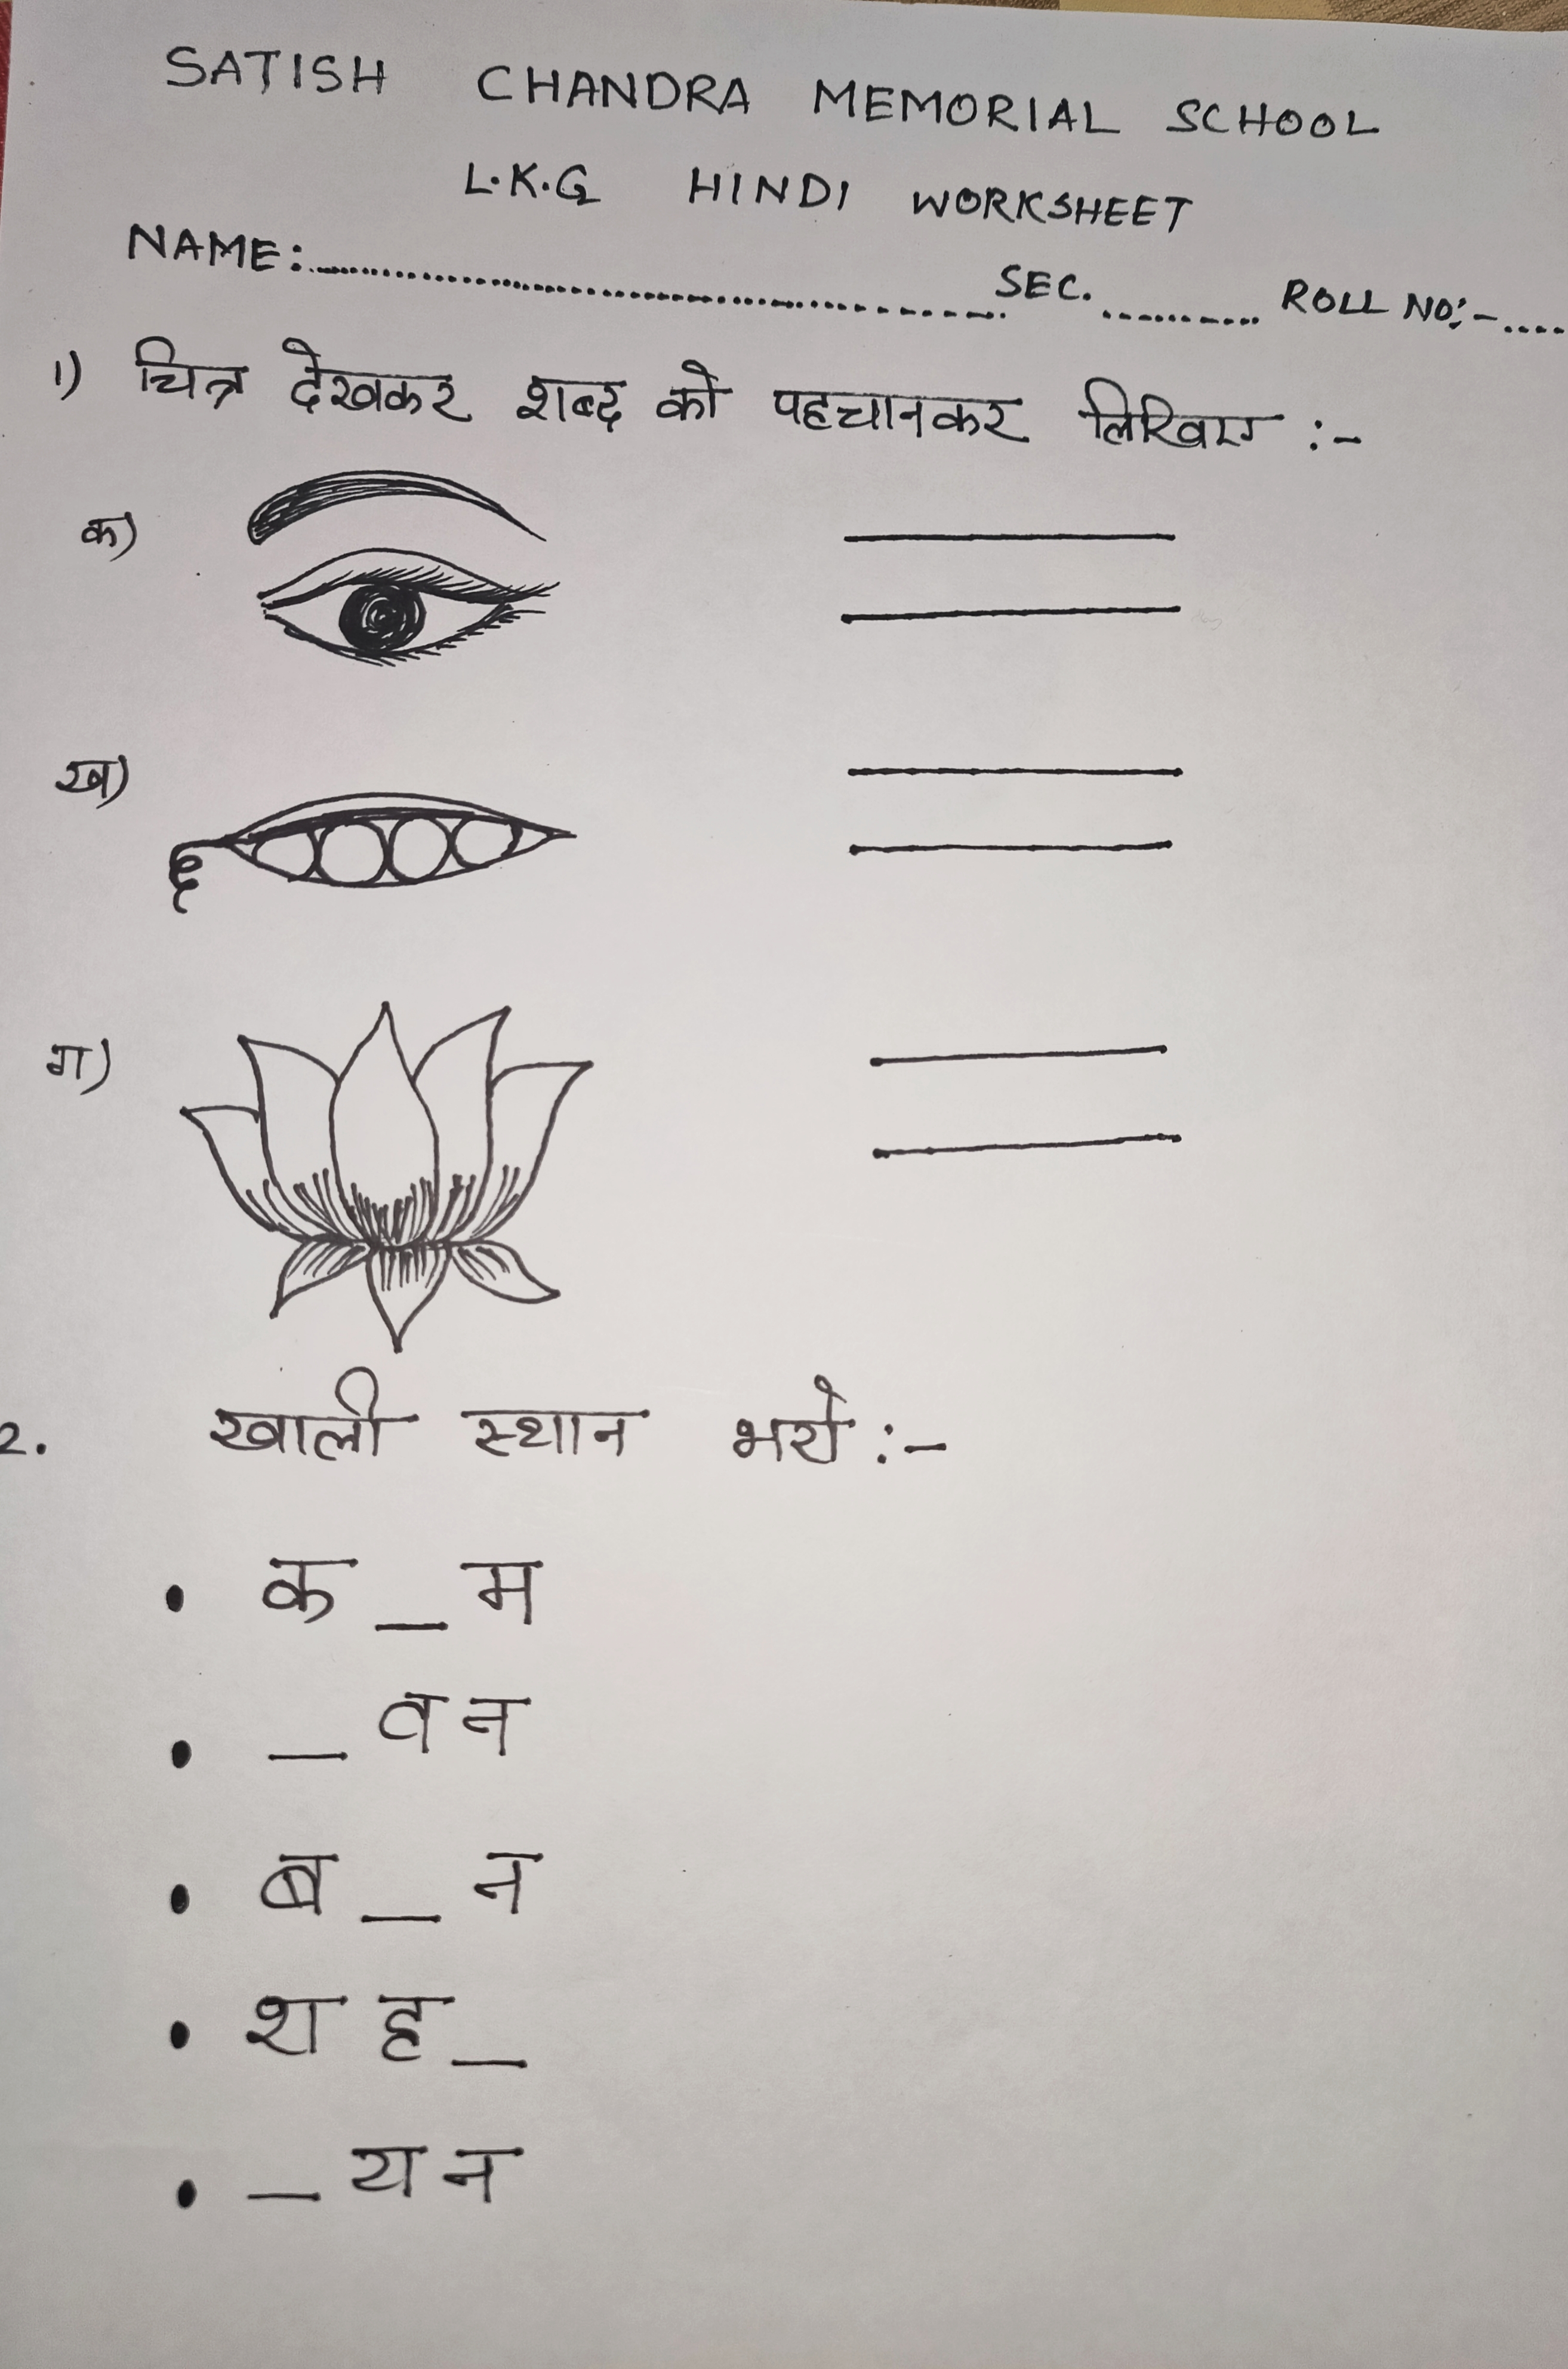 SATISH CHANDRA MEMORIAL SCHOOL
L.K.G HINDI WORKSHEET
NAME:.......................................................... SEC. ........... ROLL NO:-....
1) चित्र देखकर शब्द को पहचानकर लिखिए :-
क)
ख)
ग)
2. खाली स्थान भरो :-
• क _ म
• _ व न
• ब _ न
• श ह _
• _ य न